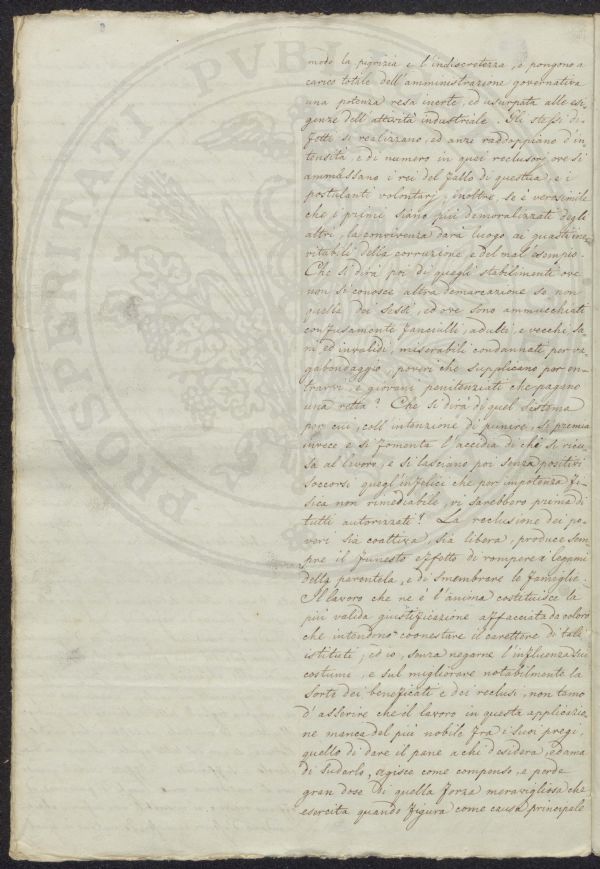 modo la pigrizia e l'indiscretezza, e pongono a
carico totale dell'amministrazione governativa
una potenza resa inerte, ed usurpata alle esi-
genze dell'attività industriale. Gli stessi di-
fetti si realizzano, ed anzi raddoppiano d'in
tensità, e di numero in quei reclusorj ove si
ammassano i rei del fallo di questua, e i
postulanti volontarj; inoltre, se è verosimile
che i primi siano più demoralizzati degli
altri, la convivenza darà luogo ai guasti ine-
vitabili della corruzione, e del mal esempio.
Che si dirà poi di quegli stabilimenti ove
non si conosce altra demarcazione se non
quella dei sessi, ed ove sono ammucchiati
confusamente fanciulli, adulti, e vecchi sa
ni ed invalidi, miserabili condannati per va
gabondaggio, poveri che supplicano per en-
trarvi, e giovani penitenziati che pagano
una retta? Che si dirà di quel sistema
per cui, coll'intenzione di punire, si premia
invece e si fomenta l'accidia di chi si ricu
sa al lavoro, e si lasciano poi senza positivi
soccorsi quegl'infelici che per impotenza fi-
sica non rimediabile, vi sarebbero prima di
tutti autorizzati? La reclusione dei po-
veri sia coattiva, sia libera, produce sem
pre il funesto effetto di rompere i legami
della parentela, e di smembrare le famiglie.
Il lavoro che ne è l'anima costituisce la
più valida giustificazione affacciata da coloro
che intendono coonestare il carattere di tali
istituti; ed io, senza negarne l'influenza sui
costumi, e sul migliorare notabilmente la
sorte dei beneficati e dei reclusi, non temo
d'asserire che il lavoro in questa applicazio
ne manca del più nobile fra i suoi pregi,
quello di dare il pane a chi desidera, ed ama
di sudarlo, agisce come compenso, e perde
gran dose di quella forza meravigliosa che
esercita quando figura come causa principale